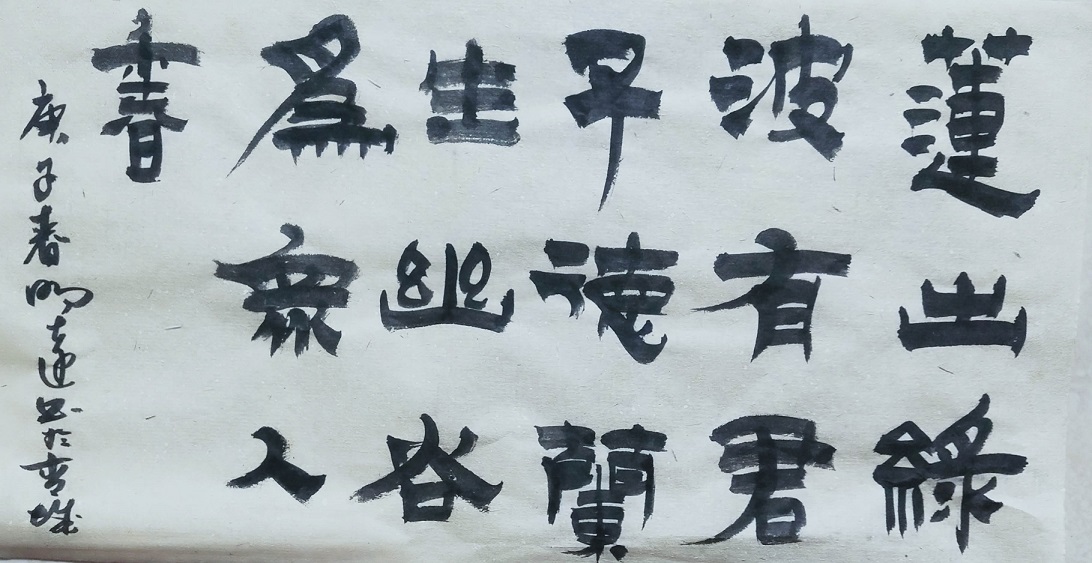 蓮出綠
波有君
子德蘭
生幽谷
爲衆人
香
庚子春明達书於青城